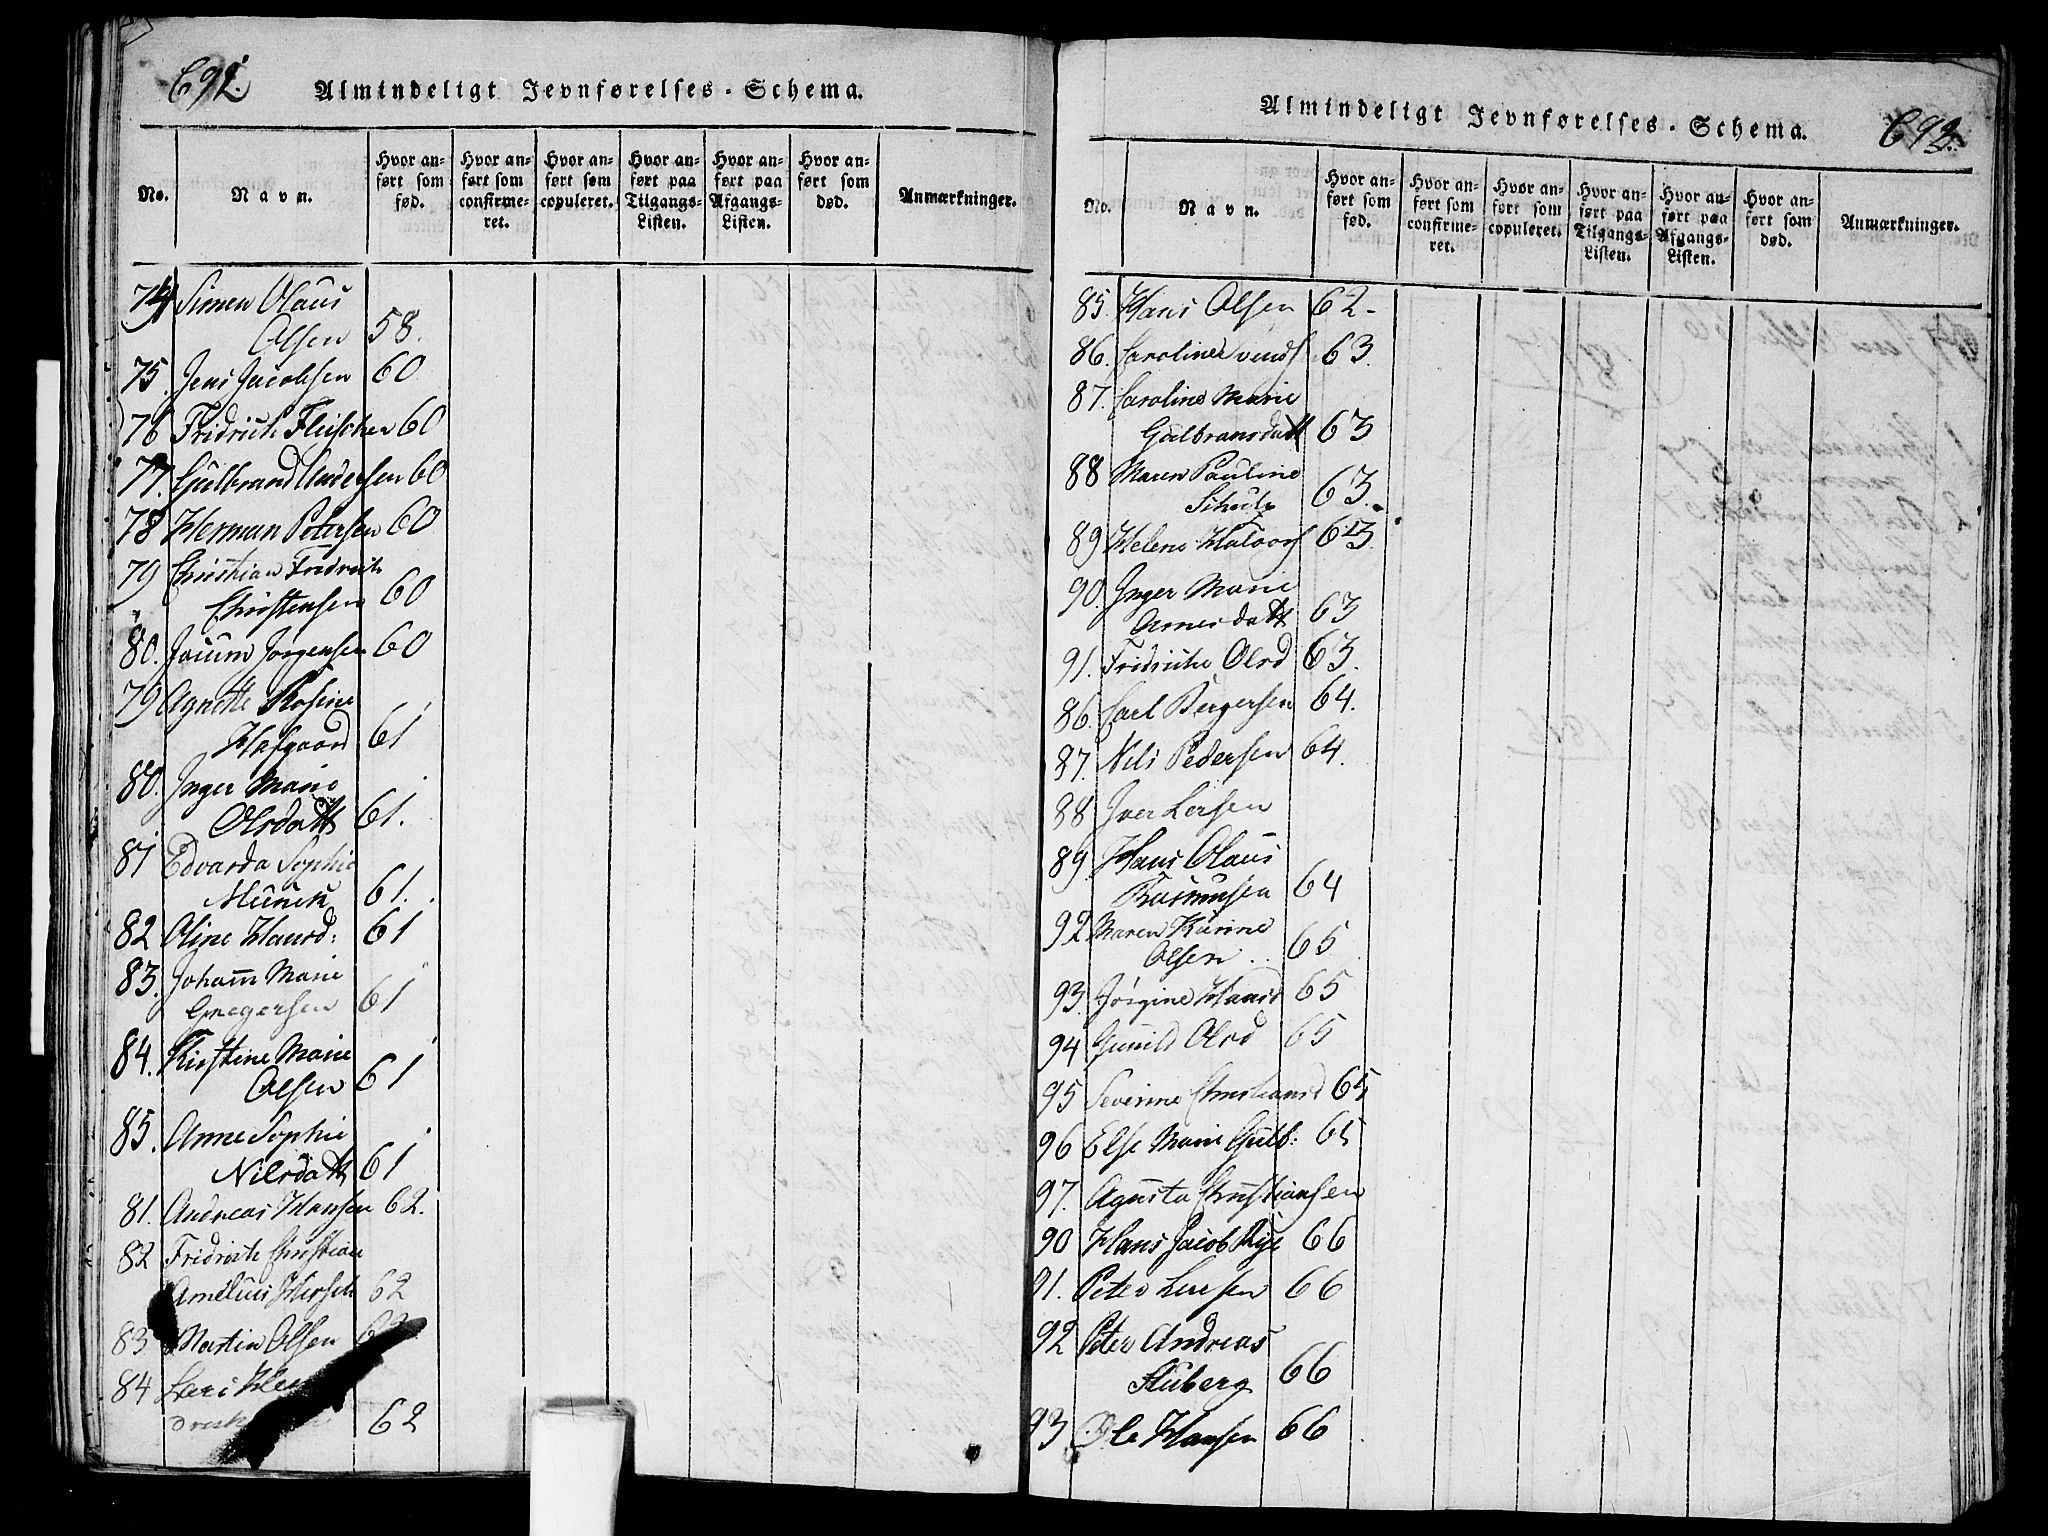 692.
Almindeligt Jevnførelses-Schema.
No.
Navn.
Hvor anført som fød.
Hvor anført som confirmeret.
Hvor anført som copuleret.
Hvor anført paa Tilgangs-Listen.
Hvor anført paa Afgangs-Listen.
Hvor anført som død.
Anmærkninger.
74 Simen Olaus
Olsen 58.
75. Jens Jacobsen 60
76 Fridrich Fleischer 60
77. Gulbrand Andersen 60
78 Herman Petersen 60
79 Christian Fridrich
Christensen 60
80. Joium Jørgensen 60
79 Agnette Rosine
Hafgaard 61
80. Inger Marie
Olsdatt 61.
81 Edvarda Sophie
Munch 61.
82 Oline Hansd: 61
83. Johan̄ Marie
Gregersen 61
84. Kirstine Marie
Olsen 61
85. Anne Sophie
Nilsdatt 61
81. Andreas Hansen 62.
82 Fridrich Christian
Amelius Hersch 62
83 Martin Olsen
84 Lars
62
693.
Almindeligt Jevnførelses-Schema.
No.
Navn.
Hvor anført som fød.
Hvor anført som confirmeret.
Hvor anført som copuleret.
Hvor anført paa Tilgangs-Listen.
Hvor anført paa Afgangs-Listen.
Hvor anført som død.
Anmærkninger.
85. Hans Olsen 62-
86. Caroline 63
87. Caroline Marie
Gulbransdatt 63
88 Maren Pauline
Schultz 63.
89 Helene Halvors 63
90. Inger Marie
Arnesdatt 63
91. Fridriche Olsd 63.
86. Carl Bergersen 64.
87. Nils Pedersen 64.
88 Iver Larsen
89 Hans Olaus
Rasmusen 64
92 Maren Karine
Olsen .. 65
93. Jørgine Hansd 65
94 Gunild Olsd 65
95 Severine Christiansd 65
96 Else Marie Gulb: 65
97. Agusta Christiansen
90 Hans Jacob Rye 66
91. Peter Larsen 66
92 Peter Andreas
Stuberg 66
93 Ole Hansen 66